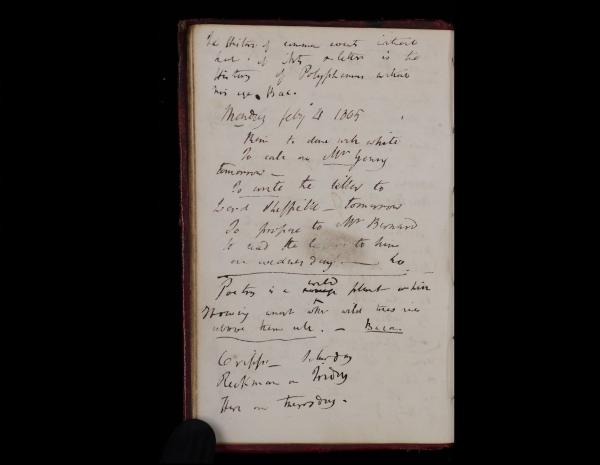 The History of common events without
that of Arts & letters is the
History of Polyphemus without
his eye. Bac.
Monday Feby 4 1805
to dine with white
To call on Mr Young
tomorrow —
To write the letter to
Lord Sheffield — tomorrow
To propose to Mr Bernard
to read the to him
on wednesday —
Poetry is a wild plant which
growing amongst other wild trees
above them all. — Baco.
Cripps —
Rickman on Friday
Here on Thursday.